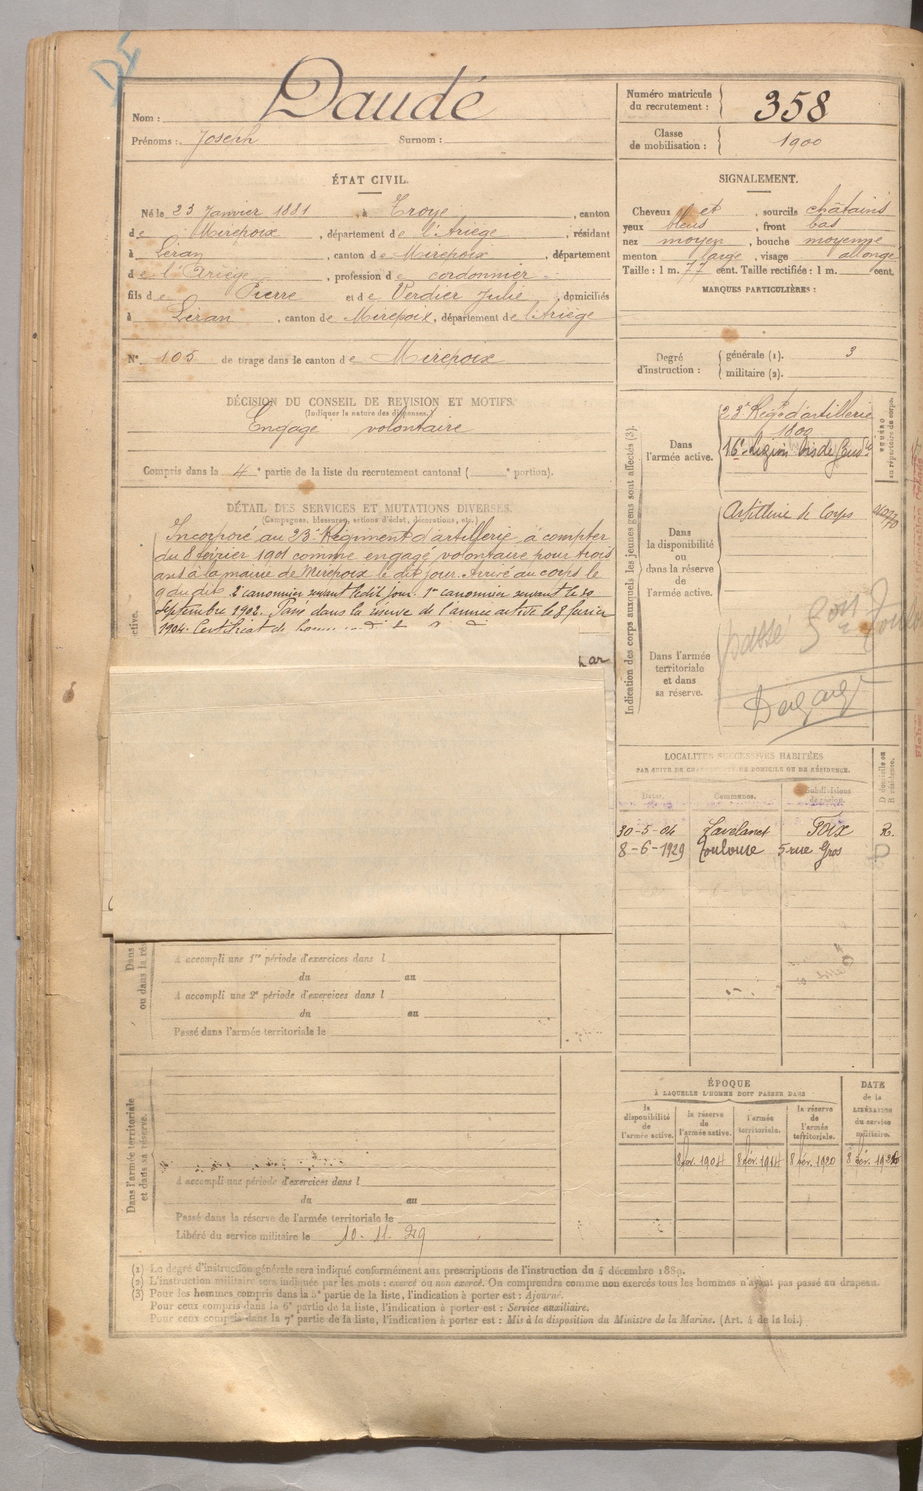 Nom : Daudé
Prénoms : Joseph Surnom :
Numéro matricule du recrutement : 358
Classe de mobilisation : 1900
ÉTAT CIVIL.
Né le 23 Janvier 1881, à Troye, canton
de Mirepoix, département de l'Ariège, résidant
à Léran, canton de Mirepoix, département
de l'Ariège, profession de cordonnier
fils de Pierre et de Verdier Julie, domiciliés
à Léran, canton de Mirepoix, département de l'Ariège
N° 105 de tirage dans le canton de Mirepoix
SIGNALEMENT.
Cheveux et, sourcils châtains
yeux bleus, front bas
nez moyen, bouche moyenne
menton large, visage allongé
Taille : 1 m. 77 cent. Taille rectifiée : 1 m. cent.
MARQUES PARTICULIÈRES :
Degré d'instruction : générale (1). 3
militaire (2).
DÉCISION DU CONSEIL DE REVISION ET MOTIFS.
(Indiquer la nature des dispenses.)
Engagé volontaire
Compris dans la 4e partie de la liste du recrutement cantonal ( e portion).
DÉTAIL DES SERVICES ET MUTATIONS DIVERSES.
(Campagnes, blessures, actions d'éclat, décorations, etc.)
Incorporé au 23e Régiment d'artillerie à compter
du 8 février 1901 comme engagé volontaire pour trois
ans à la mairie de Mirepoix le dit jour. Arrivé au corps le
9 du dit. 2e canonnier servant le dit jour. 1er canonnier servant le 20
septembre 1902. Passé dans la réserve de l'armée active le 8 février
1904. Certificat de bonne
Indication des corps auxquels les jeunes gens sont affectés (3).
Dans l'armée active.
23e Régt d'artillerie
1802
16e Légion
NUMÉRO
au répertoire du corps.
Dans la disponibilité ou dans la réserve de l'armée active.
Artillerie de Corps
Dans l'armée territoriale et dans sa réserve.
passé
LOCALITÉS SUCCESSIVES HABITÉES
PAR SUITE DE CHANGEMENT DE DOMICILE OU DE RÉSIDENCE.
Dates. Communes. Subdivisions de région. D domicile ou R résidence.
30-5-04 Lavelanet Foix R.
8-6-1929 Toulouse 5 rue Gros D
A accompli une 1re période d'exercices dans l
du au
A accompli une 2e période d'exercices dans l
du au
Passé dans l'armée territoriale le
Dans l'armée territoriale et dans sa réserve.
A accompli une période d'exercices dans l
du au
Passé dans la réserve de l'armée territoriale le
Libéré du service militaire le 10. 11. 29
ÉPOQUE
À LAQUELLE L'HOMME DOIT PASSER DANS
la disponibilité de l'armée active. la réserve de l'armée active. l'armée territoriale. la réserve de l'armée territoriale.
DATE de la LIBÉRATION du service militaire.
8 fév. 1904 8 fév. 1914 8 fév. 1920 8 fév. 1926
(1) Le degré d'instruction générale sera indiqué conformément aux prescriptions de l'instruction du 4 décembre 1889.
(2) L'instruction militaire sera indiquée par les mots : exercé ou non exercé. On comprendra comme non exercés tous les hommes n'ayant pas passé au drapeau.
(3) Pour les hommes compris dans la 5e partie de la liste, l'indication à porter est : Ajourné.
Pour ceux compris dans la 6e partie de la liste, l'indication à porter est : Service auxiliaire.
Pour ceux compris dans la 7e partie de la liste, l'indication à porter est : Mis à la disposition du Ministre de la Marine. (Art. 4 de la loi.)